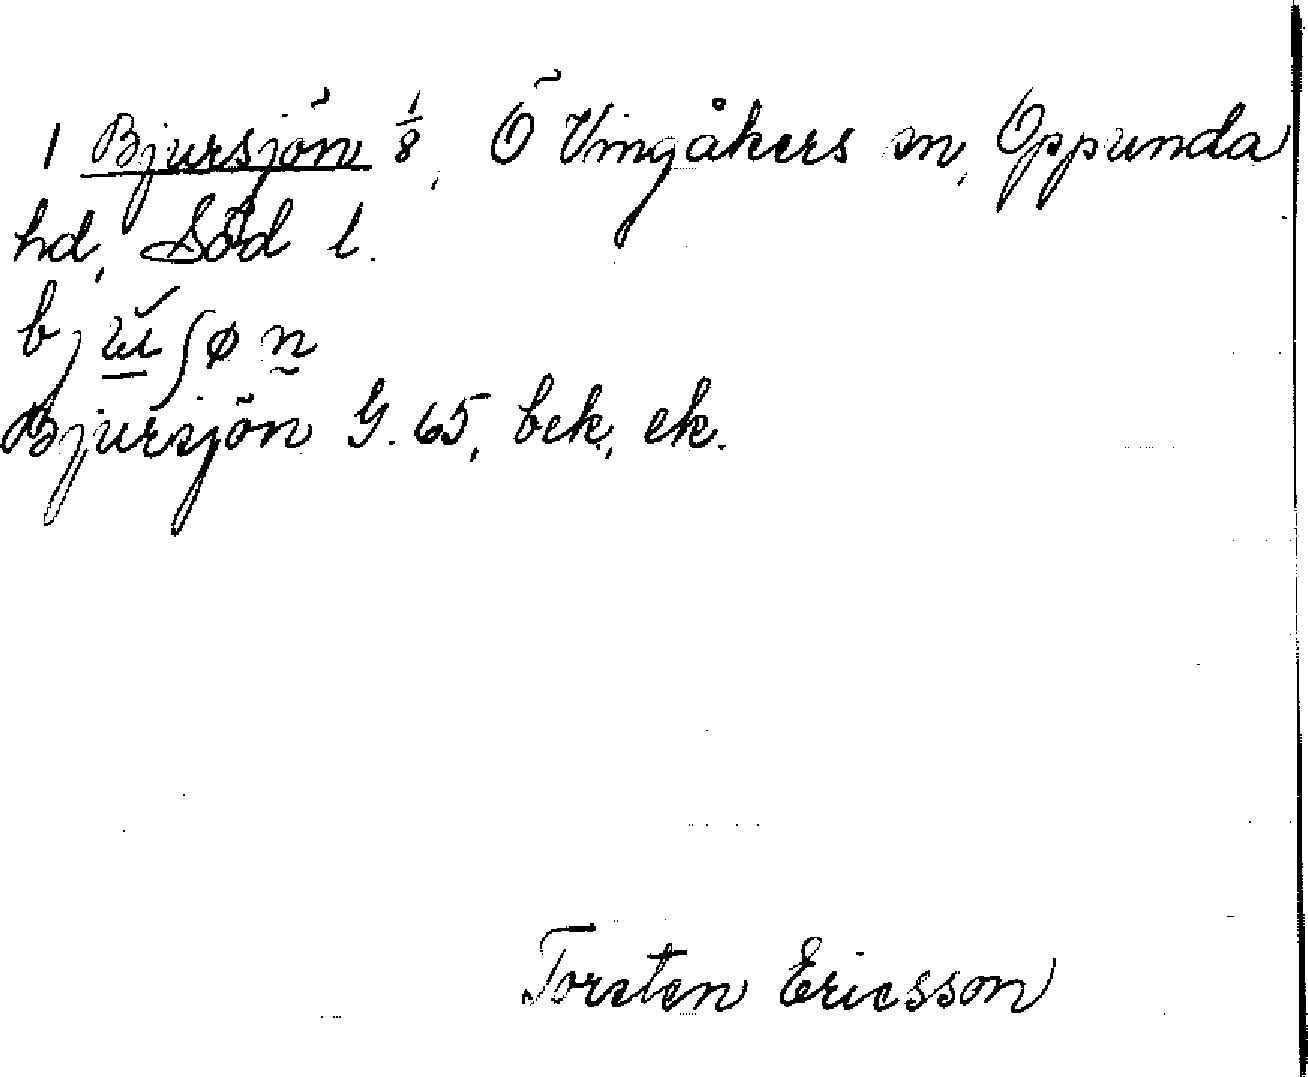 1 Bjursjön 1/8, Ö Vingåkers sn, Oppunda
hd, Söd l.
bjuʃøn
Bjursjön G. 65, bek, ek.
Torsten Ericsson